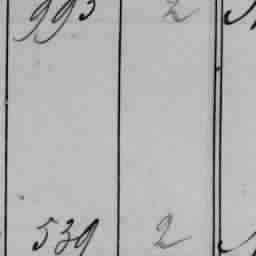 993 2
539 2